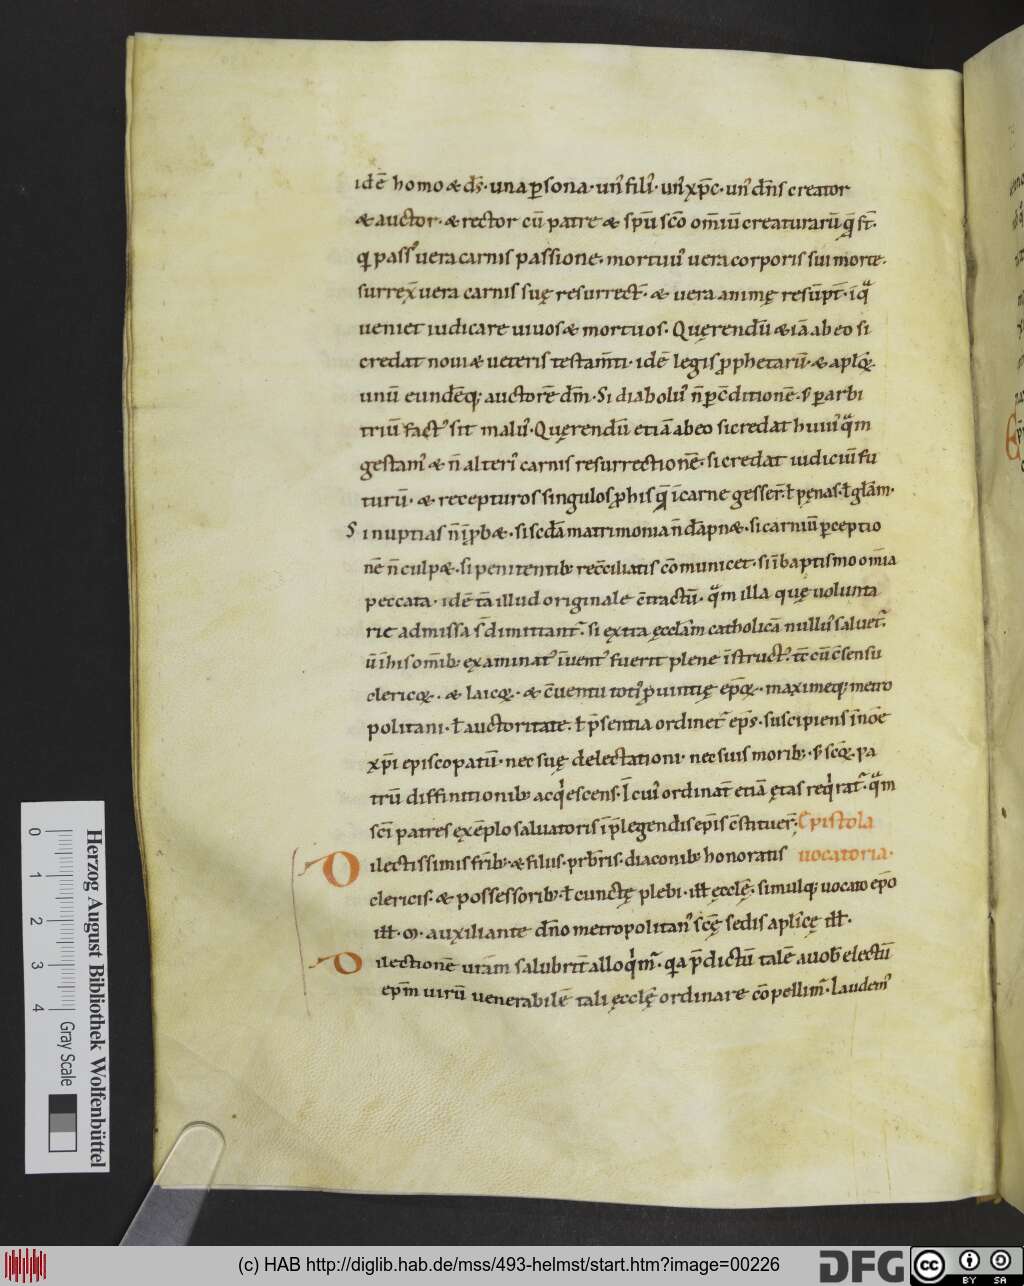 idē homo & ds̄· una ꝑsona· un᷒ fili᷒· un᷒ xp̄c· un᷒ dn̄s creator
& auctor· & rector cū patre & sp̄u sc̄o om̄iū creaturarū q̄ st̄·
q pass᷒ uera carnis passione· mortuu᷒ uera corporis sui morte·
surrex̄ uera carnis suę resurrect̄· & uera animę resūpt̄· ī qᵃ
ueniet iudicare uiuos & mortuos· Quęrendū & iā ab eo si
credat noui & ueteris testam̄ti· idē legis ꝓphetarū· & aplꝝ·
unū eundēq; auctorē dm̄· Si diabolu᷒ n̄ ꝑ c̄ditionē· s; ꝑ arbi
triū fact᷒ sit malu᷒· Quęrendū etiā ab eo si credat huiu᷒ qᵃm
gestam᷒ & n̄ alteri᷒ carnis resurrectionē· si credat iudiciū fu
turū· & recepturos singulos ꝓ his q̄ ī carne gesser̄· ł pęnas· ł glām·
Si nuptias n̄ īꝓb&· si sc̄da matrimonia n̄ dāpn&· si carniū ꝑceptio
nē n̄ culp&· si penitentib; recc̄iliatis cōmunicet· si ī baptismo om̄ia
peccata· idē tā illud originale c̄tractū· qᵃm illa quę uolunta
rie admissa s̄ dimittant᷒· si extra ęccłam catholicā nullu᷒ saluet᷒·
Cū ī his om̄ib; examinat᷒ īuent᷒ fuerit plene īstruct᷒· tc̄ cū c̄sensu
clericoꝝ· & laicoꝝ· & c̄uentu toti᷒ ꝓuintię ep̄oꝝ· maximeq; metro
politani· ł auctoritate· ł p̄sentia ordinet᷒ ep̄s· suscipiens ī noē
xp̄i episcopatū· nec suę delectationi· nec suis morib;· s; sc̄oꝝ pa
trū diffinitionib; acqⁱescens· I cui᷒ ordinat̄ etiā ętas reqⁱrat᷒· qᵃm
sc̄i patres exēplo saluatoris ī p̄legendis ep̄is c̄stituer̄· Epistola
Dilectissimis frīb;· & filiis· prb̄ris· diaconib; honoratis uocatoria·
clericis· & possessorib;· ł cunctę plebi· iłł ęcclę· simulq; uocato ep̄o
iłł· M· auxiliante dn̄o metropolitan᷒ sc̄ę sedis aplīcę iłł·
Dilectionē uram salubrit̄ alloqⁱm᷒· qa p̄dictū talē a uob̄ electū
ep̄m uirū uenerabilē tali ęcclę ordinare cōpellim᷒· Laudem᷒
Herzog August Bibliothek Wolfenbüttel
0 1 2 3 4
Gray Scale
(c) HAB http://diglib.hab.de/mss/493-helmst/start.htm?image=00226
DFG
cc BY SA